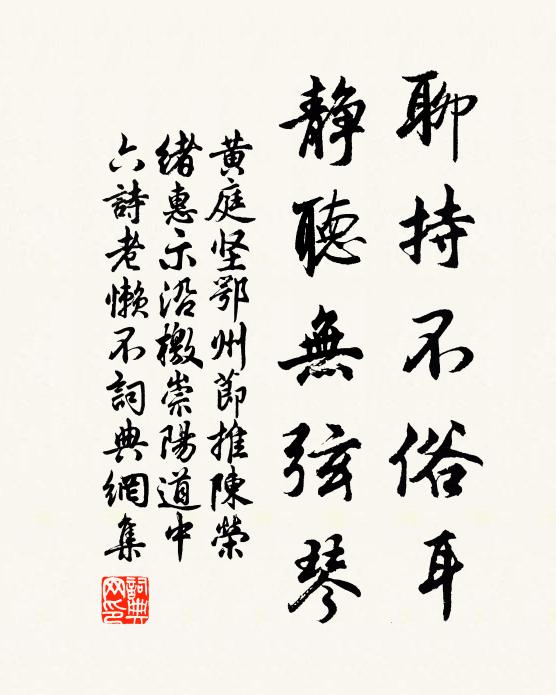 聊持不俗耳
靜聽無弦琴
黃庭坚鄂州節推陳榮
緒惠示沿檄崇陽道中
六詩老懶不詞典網集
詞典
网印